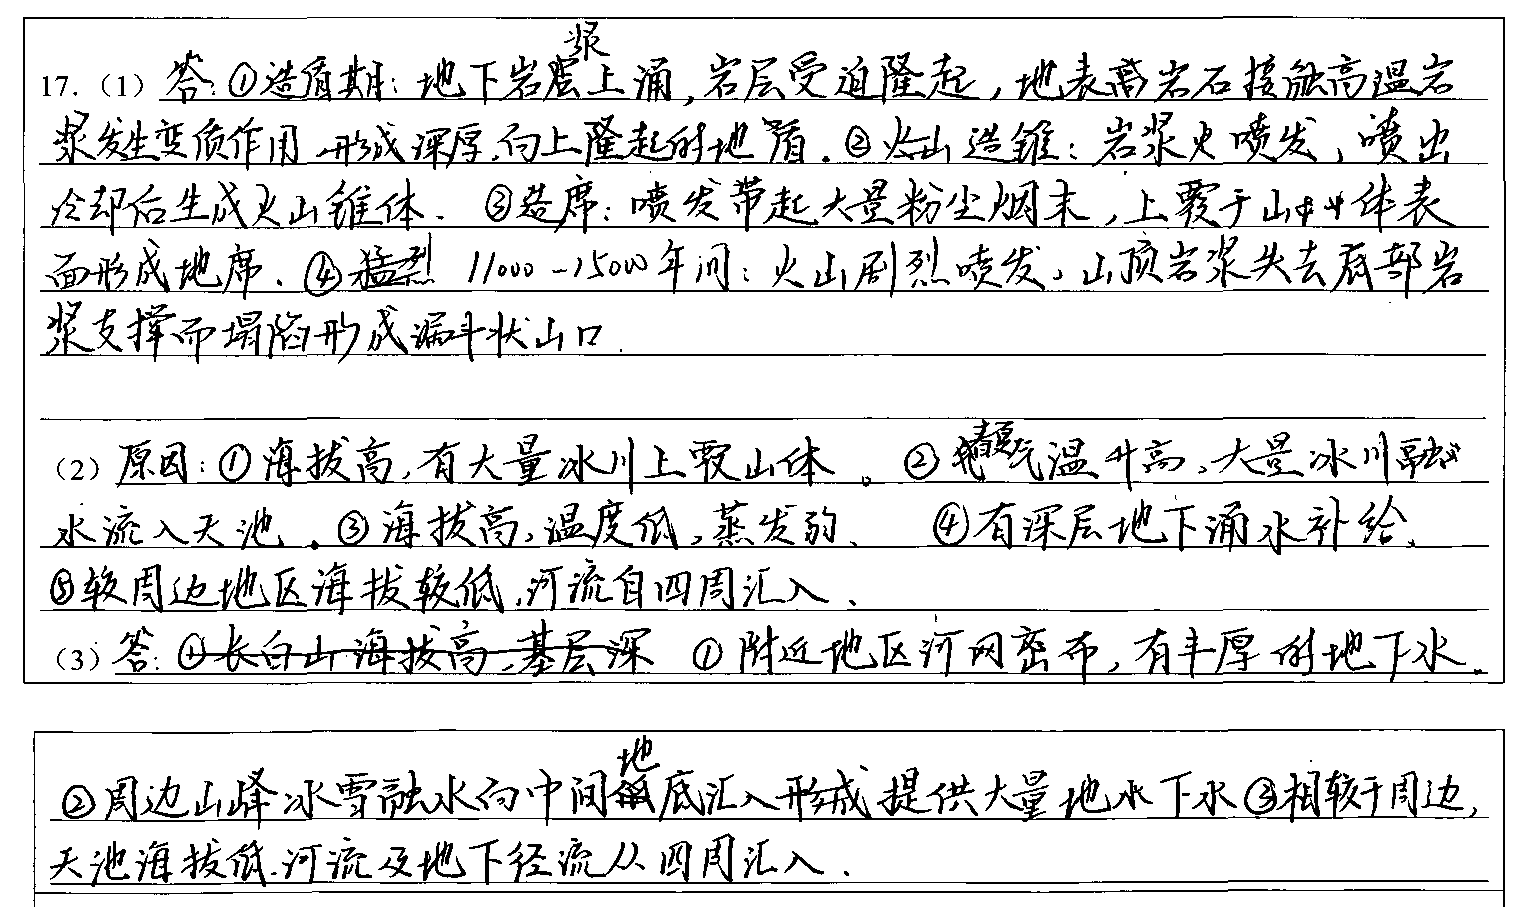 17.（1）答:①造盾期:地下岩浆上涌,岩层受迫隆起,地表高岩石接触高温岩
浆发生变质作用 形成深厚,向上隆起的地盾.②火山造锥:岩浆火喷发,喷出
冷却后生成火山锥体. ③造席:喷发带起大量粉尘烟末,上覆于山体表
面形成地席.④猛烈 11000-15000年间:火山剧烈喷发,山顶岩浆失去底部岩
浆支撑而塌陷形成漏斗状山口.
（2）原因:①海拔高,有大量冰川上覆山体。②春夏气温升高,大量冰川融
水流入天池.③海拔高,温度低,蒸发弱、 ④有深层地下涌水补给、
⑤较周边地区海拔较低,河流自四周汇入、
（3）答:①长白山海拔高,基层深 ①附近地区河网密布,有丰厚的地下水.
②周边山峰冰雪融水向中间地底汇入形成提供大量地水下水③相较于周边,
天池海拔低.河流及地下径流从四周汇入.